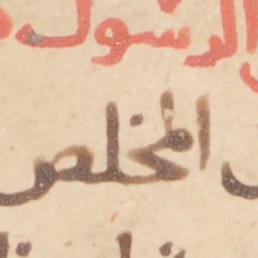 الرسول
المخلص